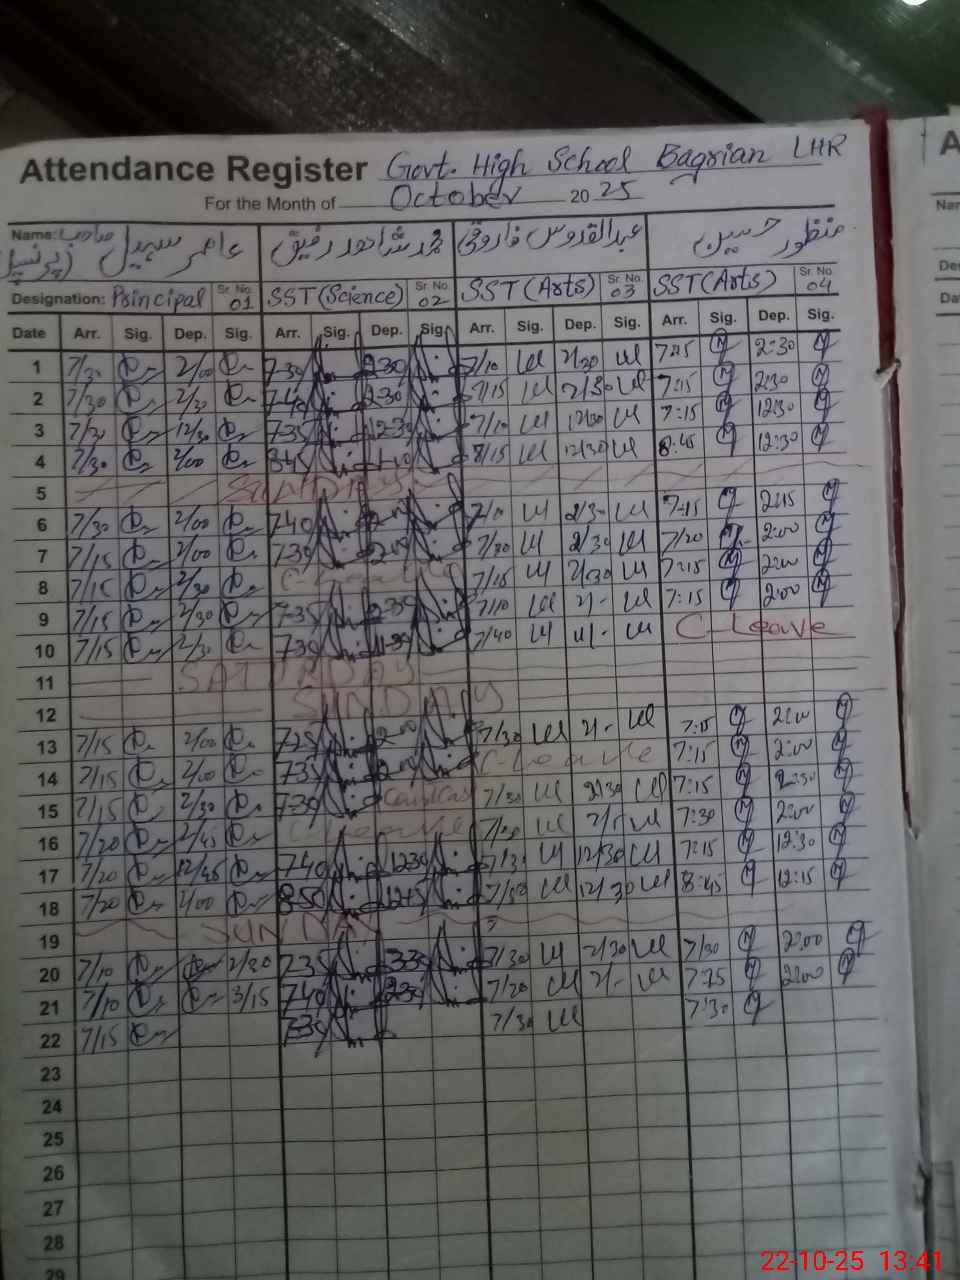 Attendance Register Govt. High School Bagrian LHR
For the Month of October 20 25
Name: عامر سہیل صاحب (پرنسپل) محمد شاہد رفیق عبدالقدوس فاروقی منظور حسین
Designation: Principal Sr No. 01 SST (Science) Sr No. 02 SST (Arts) Sr No. 03 SST (Arts) Sr No. 04
Date Arr. Sig. Dep. Sig. Arr. Sig. Dep. Sig. Arr. Sig. Dep. Sig. Arr. Sig. Dep. Sig.
1 7/30 2/00 730 230 7/10 2/30 7:15 2:30
2 7/30 2/30 740 230 7/15 2/30 7:15 2:30
3 7/30 12/30 735 1230 7/10 12/30 7:15 12:30
4 7/30 2/00 845 8/15 12/30 8:45 12:30
5 SUNDAY
6 7/30 2/00 740 2/30 7:15 2:15
7 7/15 2/00 730 7/30 2/30 7/20 2:00
8 7/15 2/30 C-Leave 7/15 2/30 7:15 2:00
9 7/15 2/30 735 230 7/10 2/- 7:15 2:00
10 7/15 2/30 730 7/40 C-Leave
11 SATURDAY
12 SUNDAY
13 7/15 2/00 725 7/30 2/- 7:15 2:00
14 7/15 2/00 735 C-Leave 7:15 2:00
15 7/15 2/30 730 7/30 2/30 7:15 2:30
16 7/20 2/45 C-Leave 7:30 2:00
17 7/20 12/45 740 1230 7/30 12/30 7:15 12:30
18 7/20 2/00 850 1245 7/50 12/30 8:45 12:15
19 SUNDAY
20 7/10 2/20 735 330 7/30 2/30 7/30 2:00
21 7/10 3/15 740 230 7/20 2/- 7:25 2:00
22 7/15 730 7/30 7:30
23
24
25
26
27
28
29
22-10-25 13:41